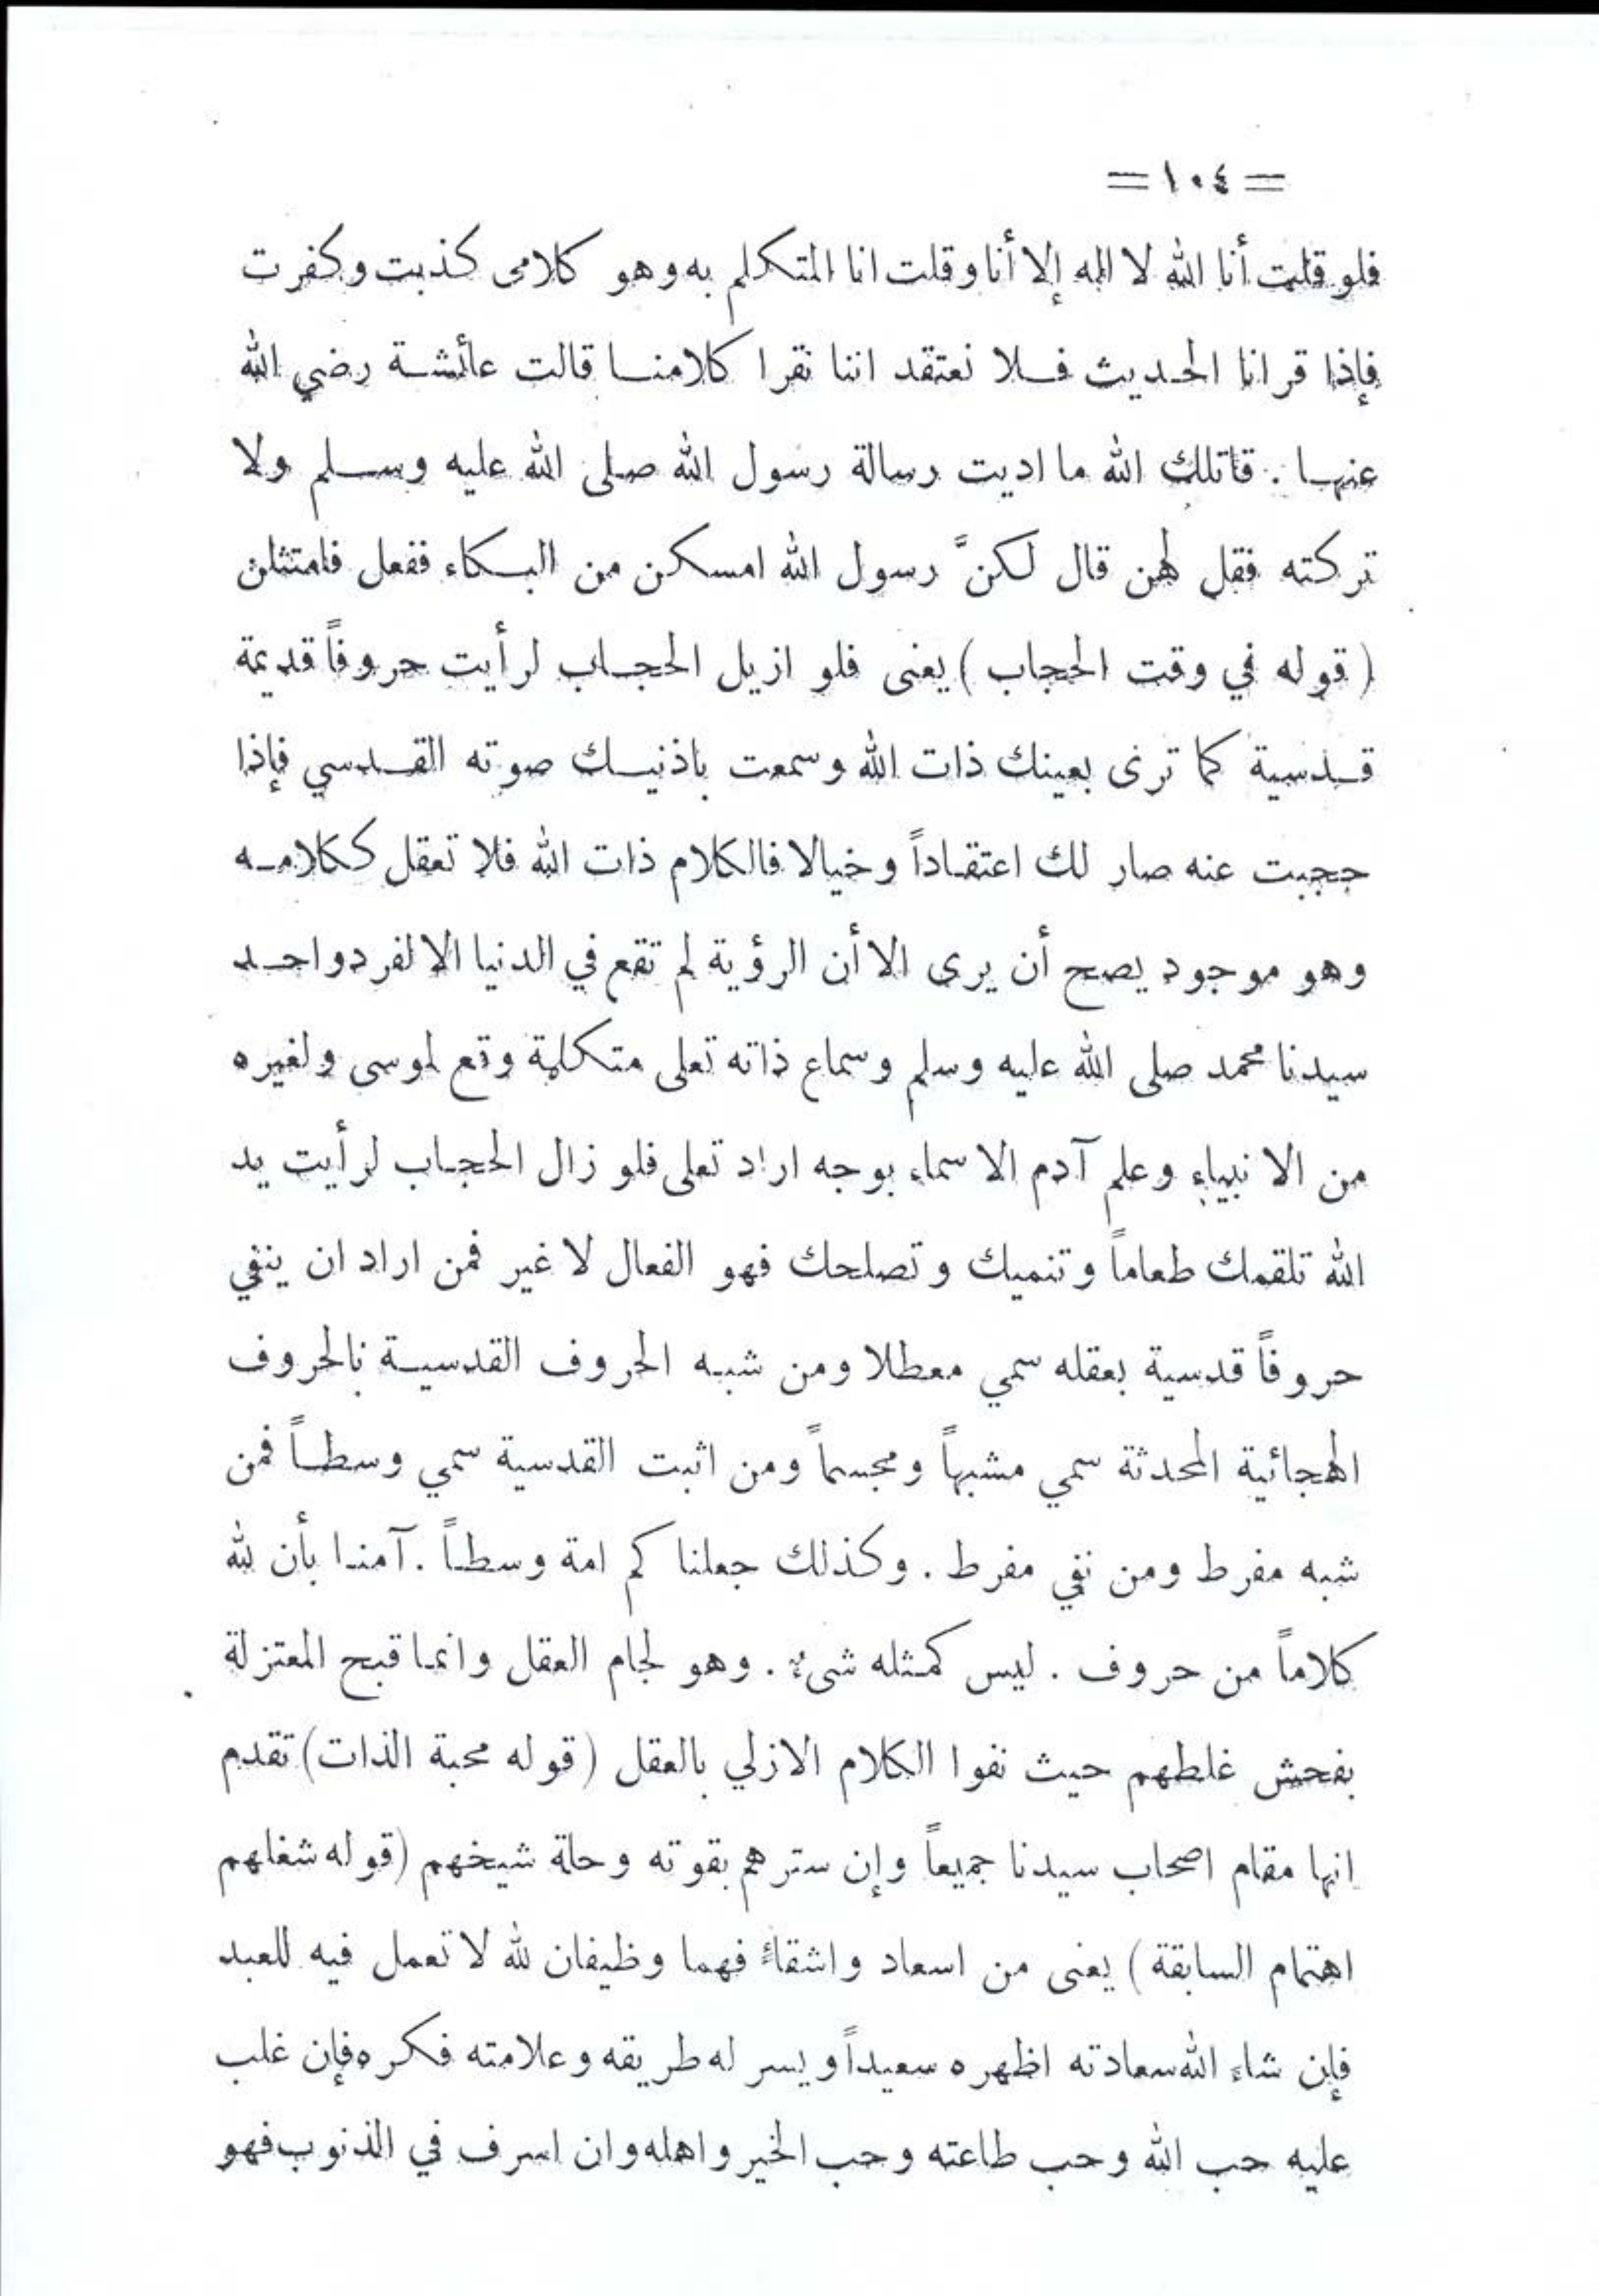 = ١٠٤ =
فلو قلت أنا الله لا اله إلا أنا وقلت انا المتكلم به وهو كلامى كذبت وكفرت
فإذا قرانا الحديث فلا نعتقد اننا نقرا كلامنا قالت عائشة رضي الله
عنها . قاتلك الله ما اديت رسالة رسول الله صلى الله عليه وسلم ولا
تركته فقل لهن قال لكنَّ رسول الله امسكن من البكاء ففعل فامتثلن
( قوله في وقت الحجاب ) يعنى فلو ازيل الحجاب لرأيت حروفاً قديمة
قدسية كما ترى بعينك ذات الله وسمعت باذنيك صوته القدسي فإذا
حجبت عنه صار لك اعتقاداً وخيالا فالكلام ذات الله فلا تعقل ككلامه
وهو موجود يصح أن يرى الا أن الرؤية لم تقع في الدنيا الا لفرد واحد
سيدنا محمد صلى الله عليه وسلم وسماع ذاته تعلى متكلمة وقع لموسى ولغيره
من الانبياء وعلم آدم الاسماء بوجه اراد تعلى فلو زال الحجاب لرأيت يد
الله تلقمك طعاماً وتنميك وتصلحك فهو الفعال لا غير فمن اراد ان ينفي
حروفاً قدسية بعقله سمي معطلا ومن شبه الحروف القدسية بالحروف
الهجائية المحدثة سمي مشبهاً ومجسماً ومن اثبت القدسية سمي وسطاً فمن
شبه مفرط ومن نفي مفرط . وكذلك جعلناكم امة وسطاً . آمنا بأن لله
كلاماً من حروف . ليس كمثله شىءٌ . وهو لجام العقل وانما قبح المعتزلة
بفحش غلطهم حيث نفوا الكلام الازلي بالعقل ( قوله محبة الذات ) تقدم
انها مقام اصحاب سيدنا جميعاً وإن سترهم بقوته وحلة شيخهم ( قوله شغلهم
اهتمام السابقة ) يعنى من اسعاد واشقاءٍ فهما وظيفان لله لا تعمل فيه للعبد
فإن شاء الله سعادته اظهره سعيداً ويسر له طريقه وعلامته فكره فإن غلب
عليه حب الله وحب طاعته وحب الخير واهله وان اسرف في الذنوب فهو